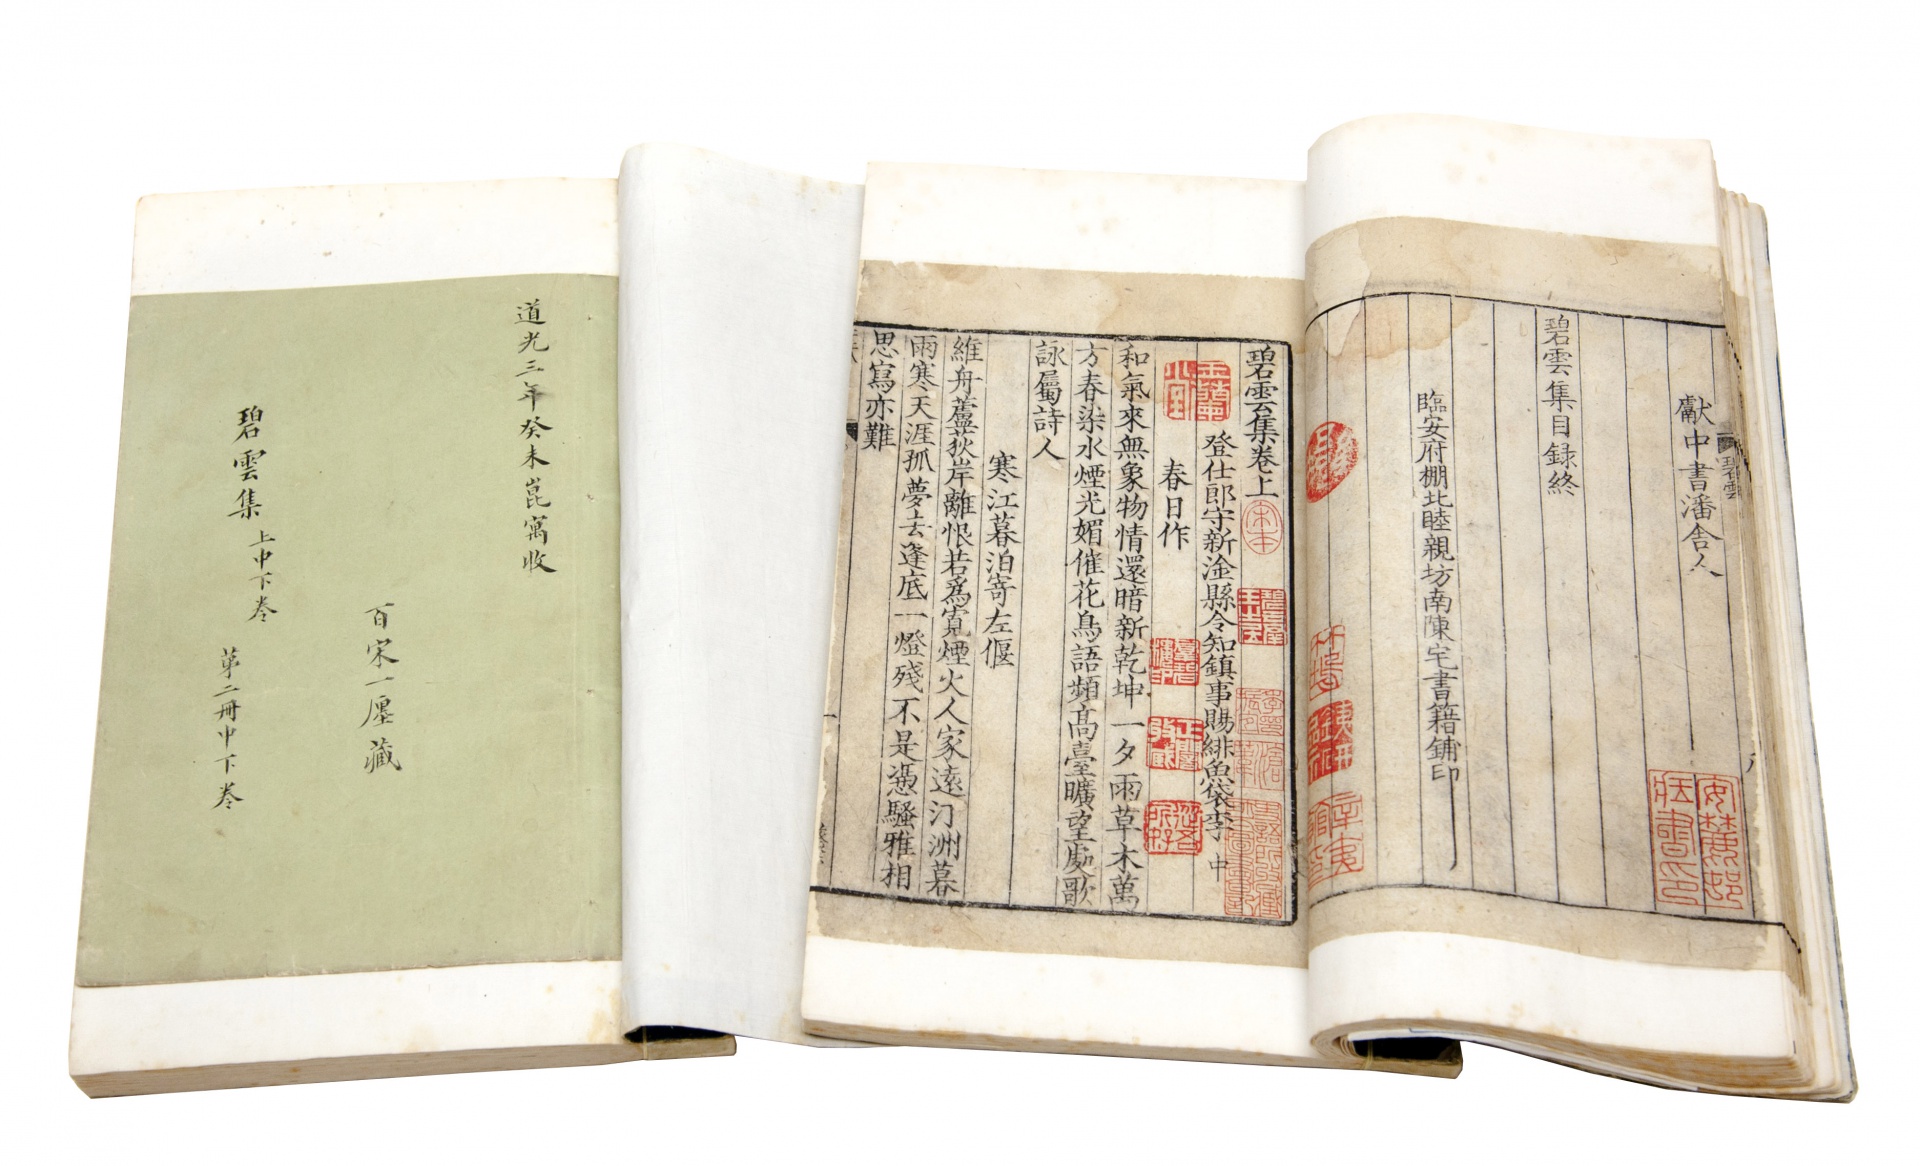 獻中書潘舍人
碧雲集目録終
臨安府棚北睦親坊南陳宅書籍鋪印
碧雲
碧雲集卷上
登仕郎守新淦縣令知鎮事賜緋魚袋李 中
春日作
和氣來無象物情還暗新乾坤一夕雨草木萬
方春染水煙光媚催花鳥語頻髙臺曠望處歌
詠屬詩人
寒江暮泊寄左偃
維舟蘆荻岸離恨若爲寛煙火人家逺汀洲暮
雨寒天涯孤夢去篷底一燈殘不是憑騷雅相
思寫亦難
宋本
道光三年癸未崑寓收
百宋一廛藏
碧雲集 上中下卷
第二冊中下卷